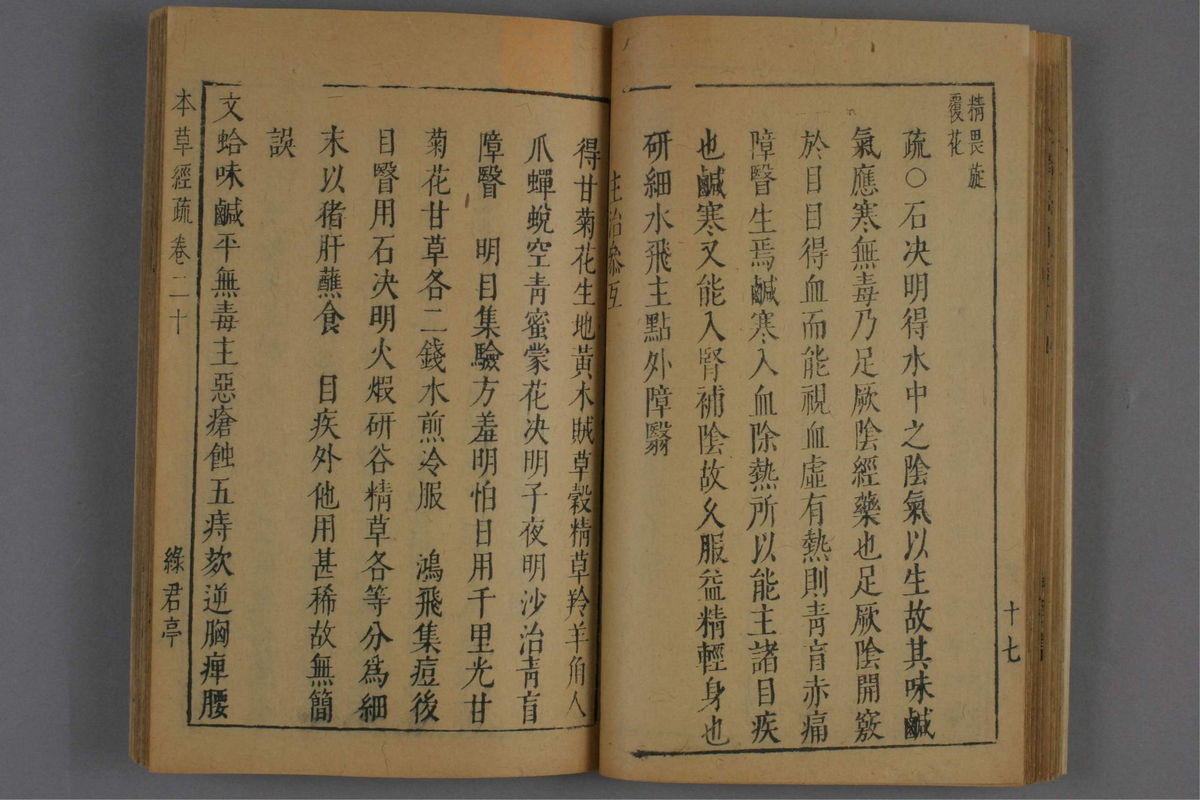 精畏旋
覆花
疏○石决明得水中之陰氣以生故其味鹹
氣應寒無毒乃足厥陰經藥也足厥陰開竅
於目目得血而能視血虛有熱則靑盲赤痛
障瞖生焉鹹寒入血除熱所以能主諸目疾
也鹹寒又能入腎補陰故久服益精輕身也
研細水飛主點外障翳
十七
主治叅互
得甘菊花生地黃木賊草穀精草羚羊角人
爪蟬蛻空靑蜜蒙花决明子夜明沙治靑盲
障瞖　明目集驗方羞明怕日用千里光甘
菊花甘草各二錢水煎冷服　鴻飛集痘後
目瞖用石决明火煅研谷精草各等分爲細
末以猪肝蘸食　目疾外他用甚稀故無簡
誤
文蛤味鹹平無毒主惡瘡蝕五痔欬逆胸痺腰
本草經疏 卷二十
綠君亭